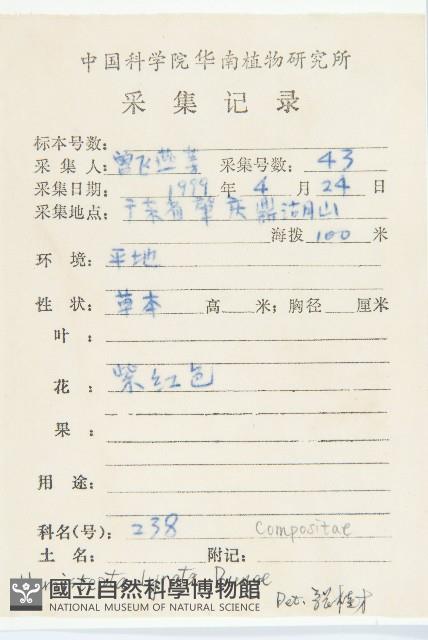 中国科学院华南植物研究所
采集记录
标本号数:
采集人: 曾飞燕等 采集号数: 43
采集日期: 1999 年 4 月 24 日
采集地点: 广东省肇庆鼎湖山
海拨 100 米
环境: 平地
性状: 草本 高 米; 胸径 厘米
叶:
花: 紫红色
果:
用途:
科名(号): 238 Compositae
土名: 附记:
Lyrata Bunge
Det. 张桂才
國立自然科學博物館
NATIONAL MUSEUM OF NATURAL SCIENCE